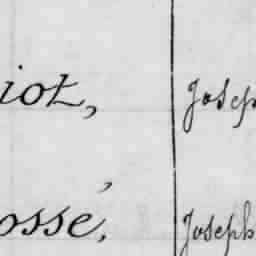 iot, Josep
osse, Joseph